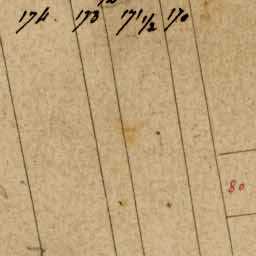 174. 173 171 1/2 170
80